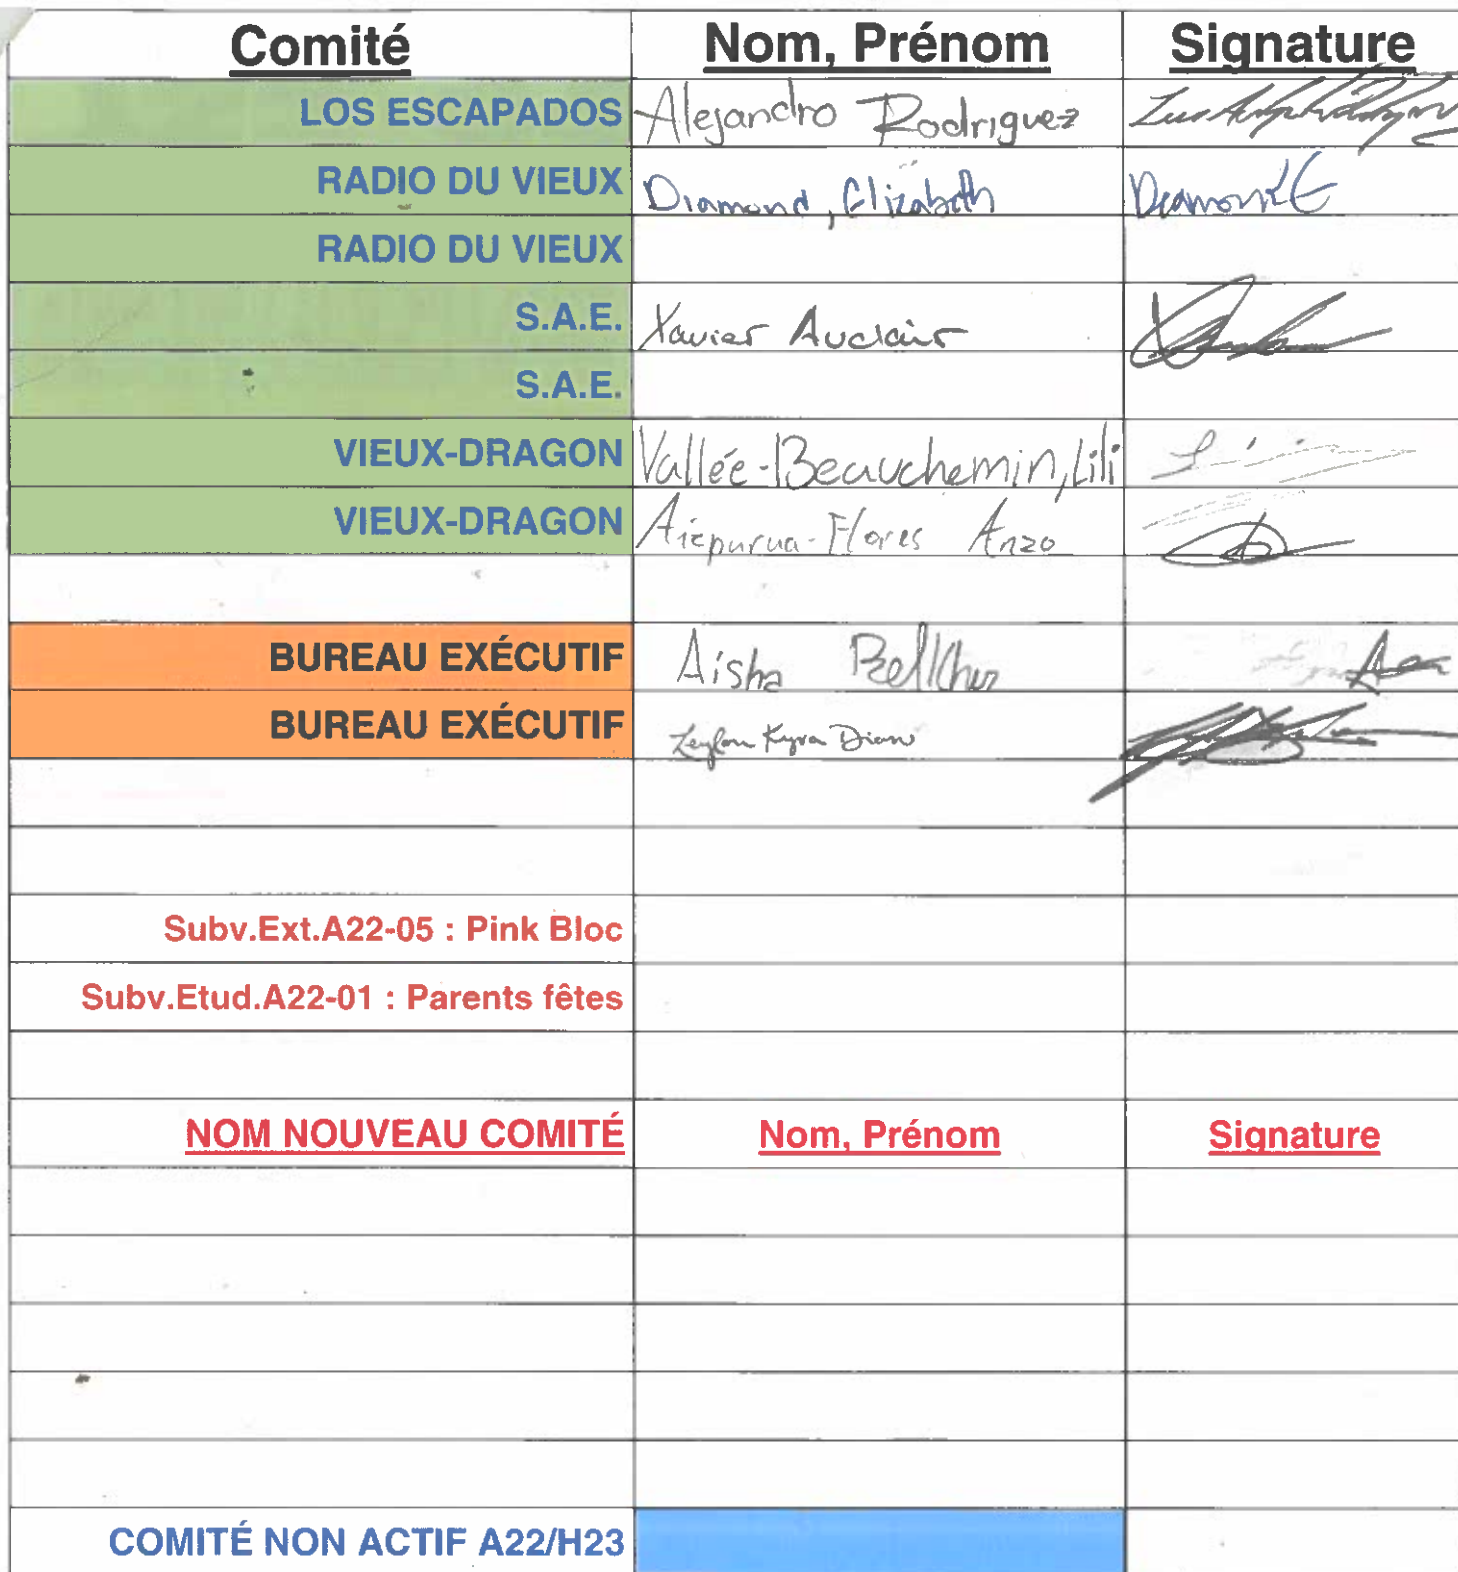 Comité Nom, Prénom Signature
LOS ESCAPADOS Alejandro Rodriguez
RADIO DU VIEUX Diamond, Elizabeth Diamond E
RADIO DU VIEUX
S.A.E. Xavier Auclair
S.A.E.
VIEUX-DRAGON Vallée-Beauchemin, Lili
VIEUX-DRAGON Aizpurua-Flores Anzo
BUREAU EXÉCUTIF Aisha
BUREAU EXÉCUTIF Kyra
Subv.Ext.A22-05 : Pink Bloc
Subv.Etud.A22-01 : Parents fêtes
NOM NOUVEAU COMITÉ Nom, Prénom Signature
COMITÉ NON ACTIF A22/H23